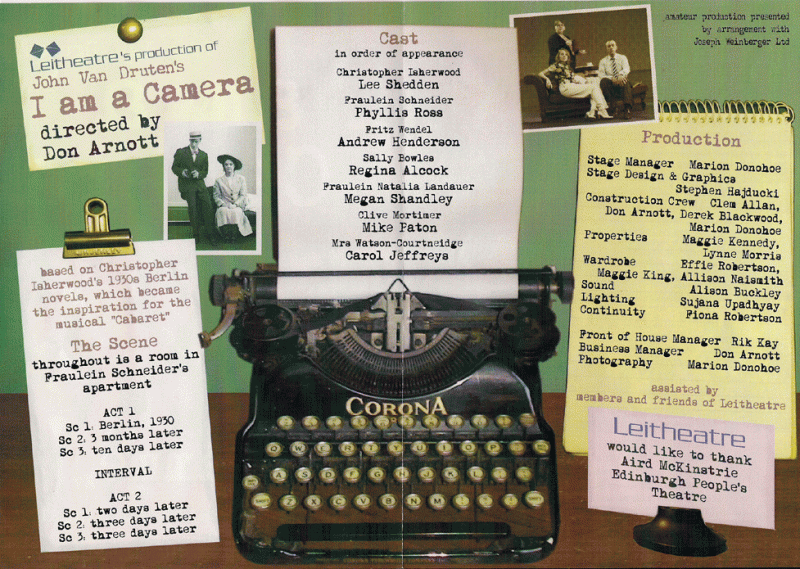 Leitheatre's production of
John Van Druten's
I am a Camera
directed by
Don Arnott
based on Christopher
Isherwood's 1930s Berlin
novels, which became
the inspiration for the
musical "Cabaret"
The Scene
throughout is a room in
Fraulein Schneider's
apartment
ACT 1
Sc 1: Berlin, 1930
Sc 2: 3 months later
Sc 3: ten days later
INTERVAL
ACT 2
Sc 1: two days later
Sc 2: three days later
Sc 3: three days later
Cast
in order of appearance
Christopher Isherwood
Lee Shedden
Fraulein Schneider
Phyllis Ross
Fritz Wendel
Andrew Henderson
Sally Bowles
Regina Alcock
Fraulein Natalia Landauer
Megan Shandley
Clive Mortimer
Mike Paton
Mrs Watson-Courtneidge
Carol Jeffreys
CORONA
Q W E R T Y U I O P
A S D F G H J K L
Z X C V B N M
amateur production presented
by arrangement with
Joseph Weinberger Ltd
Production
Stage Manager Marion Donohoe
Stage Design & Graphics
Stephen Hajducki
Construction Crew Clem Allan,
Don Arnott, Derek Blackwood,
Marion Donohoe
Properties Maggie Kennedy,
Lynne Morris
Wardrobe Effie Robertson,
Maggie King, Allison Naismith
Sound Alison Buckley
Lighting Sujana Upadhyay
Continuity Fiona Robertson
Front of House Manager Rik Kay
Business Manager Don Arnott
Photography Marion Donohoe
assisted by
members and friends of Leitheatre
Leitheatre
would like to thank
Aird McKinstrie
Edinburgh People's
Theatre